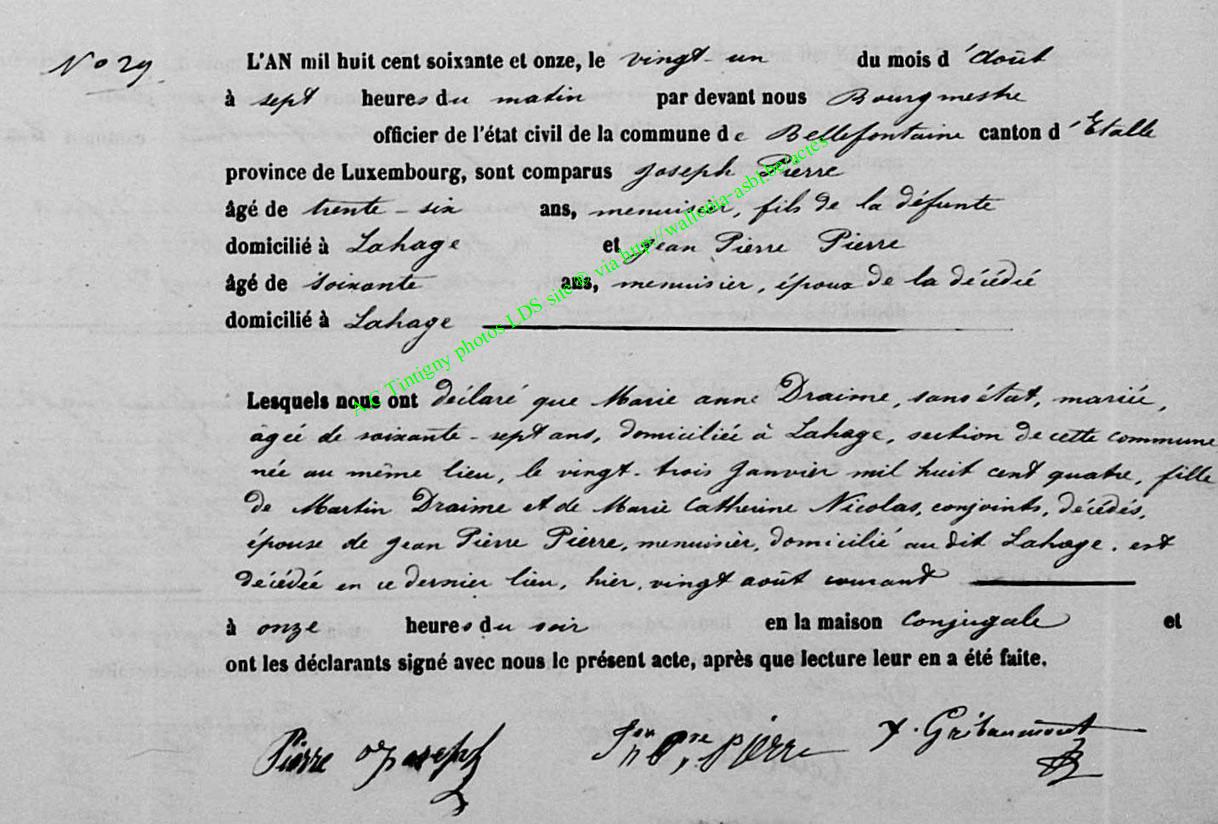 N° 29. L'AN mil huit cent soixante et onze, le vingt-un du mois d'août
à sept heures du matin par devant nous Bourgmestre
officier de l'état civil de la commune de Bellefontaine canton d'Etalle
province de Luxembourg, sont comparus Joseph Pierre
âgé de trente-six ans, menuisier, fils de la défunte
domicilié à Lahage et Jean Pierre Pierre
âgé de soixante ans, menuisier, époux de la décédé
domicilié à Lahage
Lesquels nous ont déclaré que Marie anne Draime, sans état, mariée,
agée de soixante-sept ans, domiciliée à Lahage, section de cette commune
née au même lieu, le vingt-trois Janvier mil huit cent quatre, fille
de Martin Draime et de Marie Catherine Nicolas, conjoints, décédés,
épouse de Jean Pierre Pierre, menuisier, domicilié au dit Lahage, est
décédée en ce dernier lieu, hier, vingt août courant
à onze heures du soir en la maison Conjugale et
ont les déclarants signé avec nous le présent acte, après que lecture leur en a été faite.
Pierre Joseph Jean Pre Pierre
AC Tintigny photos LDS site © via http://wallonia-asbl.be/actes